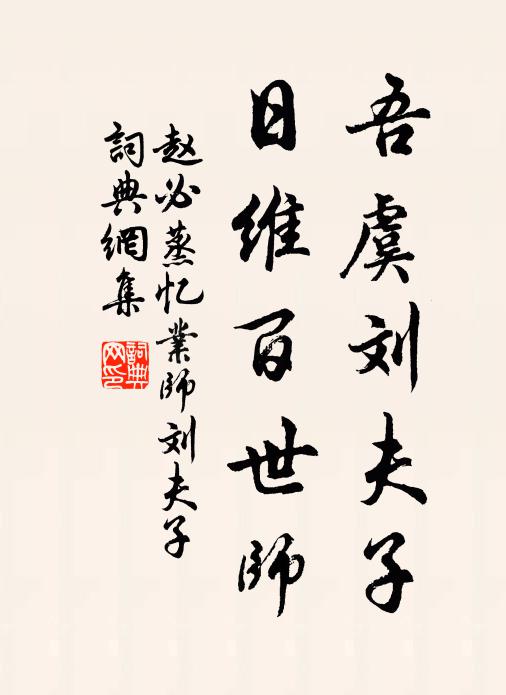 吾虞刘夫子
日维百世师
赵必蒸忆業师刘夫子
詞典網集
詞典网印